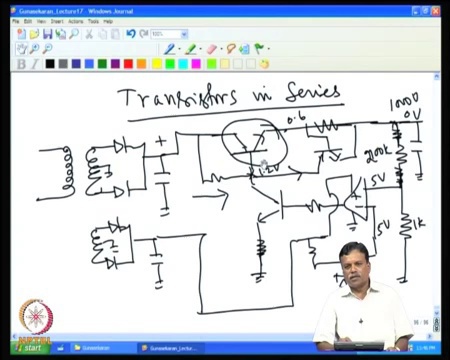 Gunasekaran_Lecture17 - Windows Journal
File Edit View Insert Actions Tools Help
Transistors in Series
1000V
0V
0.6
+
200k
1.2V
5V
5V
1k
start
Gunasekaran
Gunasekaran_Lectur...